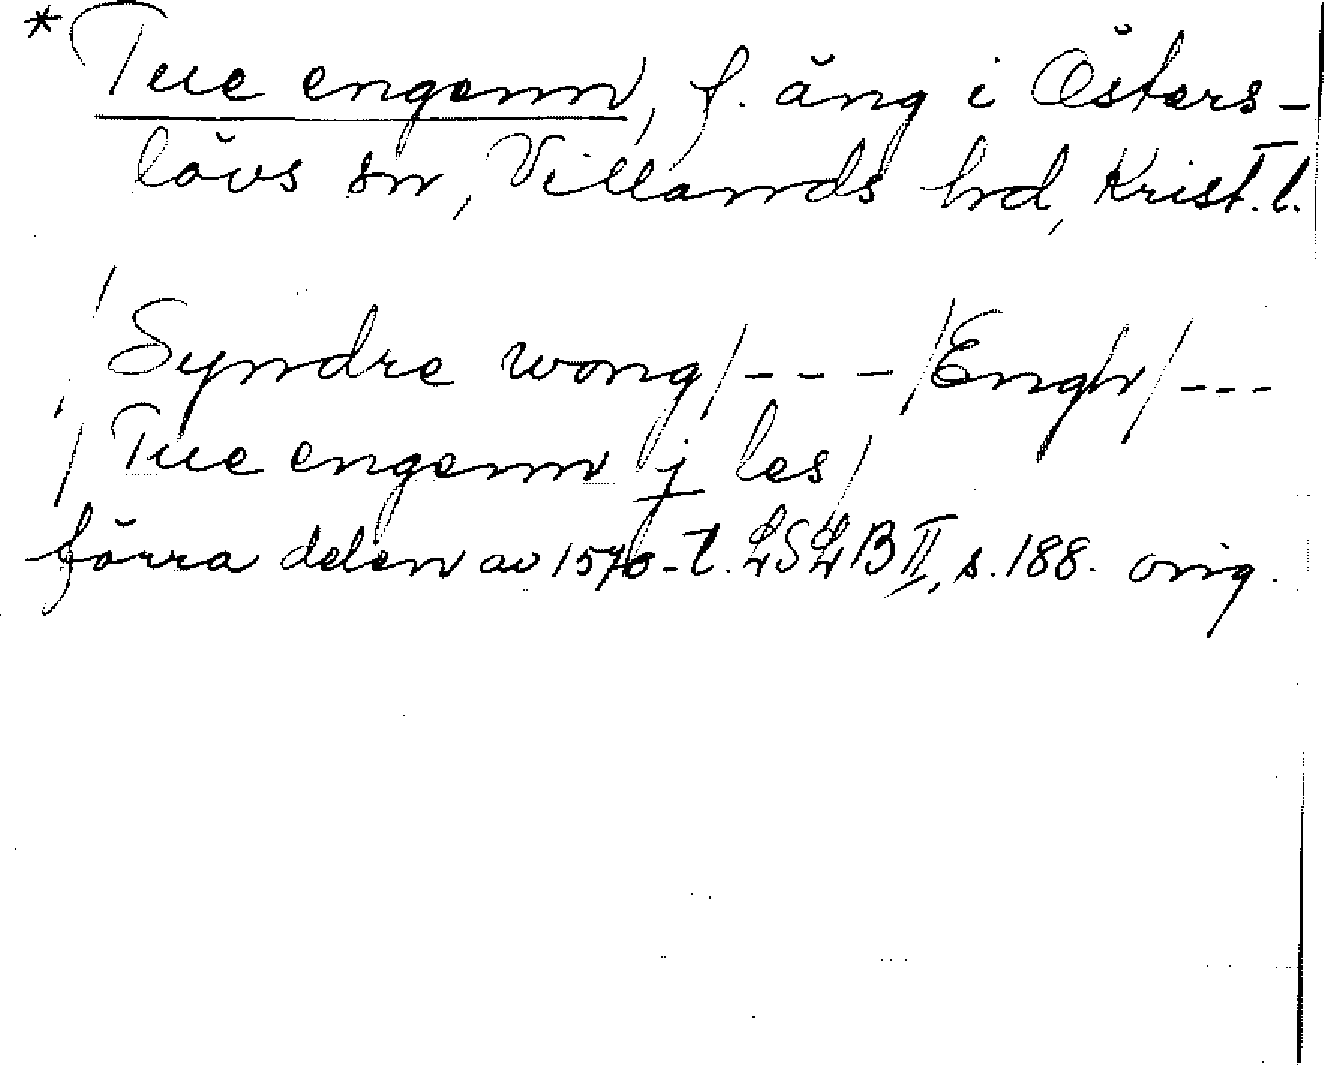 * Tue engenn, f. äng i Östers-
lövs sn, Villands hd, Krist. l.
/Syndre wong/ - - - /Engh/ - - -
/Tue engenn j les/
förra delen av 1570-t. LSLB II, s. 188. orig.